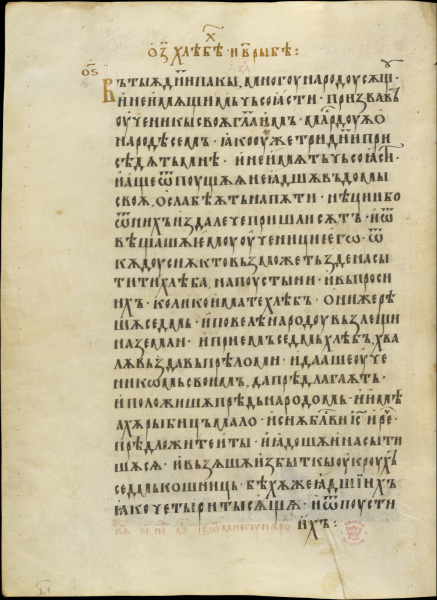 ѻ҃ з҃ хлѣбѣ · и в҃ рыбѣ :
ѻ҃ѕ
Въ тыѫ дн҃и пакы, многоу народоу сѫщꙋ ·
и не имѫщимь чьсо ꙗсти · призвавъ
оученикы своѫ гл҃а имъ · млⷭ҇рдоуѫ ѡ
народѣ семъ · ꙗко оуже три дн҃и при
сѣдѧть мнѣ · и не имѧть чьсо ꙗсти ·
и аще ѿпоущѫ ѫ не ꙗдшѫ въ домы
своѫ, ослабѣѫть на пѫти · нѣции бо
ѿ нихъ издалече пришли сѫтъ · и ѿ
вѣщашѫ емоу оученици его · ѿ
кѫдоу сиѫ кто възможеть зде насы
тити хлѣба, на поустыни · и въпроси
ихъ · колико имате хлѣбъ · они же рѣ
шѫ седмь · и повелѣ народоу възлещи
на земли · и приемъ седмь хлѣбъ, хва
лѫ въздавъ прѣломи · и дааше оуче
никѡмь своимъ, да прѣдлагаѫть ·
и положишѫ прѣдь народомь · и имѣ
ахѫ рыбицъ мало · и сиѫ блг҃ви іс҃ и реⷱ҇
прѣдложите и ты · и ꙗдошѫ и насыти
шѫ сѧ · и възѧшѫ избыткы оукроухъ
седмь кошницъ · бѣхѫ же ꙗдшїихъ
ꙗко четыри тысѫщѫ · и ѿпоусти
ихъ :